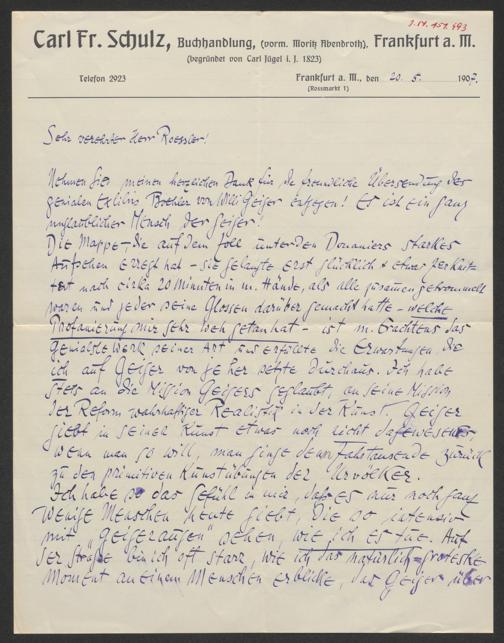 3.14.459.493
Carl Fr. Schulz, Buchhandlung, (vorm. Moritz Abendroth), Frankfurt a. M.
(begründet von Carl Jügel i. J. 1823)
Telefon 2923
Frankfurt a. M., den 20. 5. 1907.
(Rossmarkt 1)
Sehr verehrter Herr Roessler!
Nehmen Sie meinen herzlichen Dank für die freundliche Übersendung der
genialen Exlibris Boehler von Willi Geiger entgegen! Es ist ein ganz
unglaublicher Mensch der Geiger!
Die Mappe – die auf dem Zoll unter den Douaniers starkes
Aufsehen erregt hat – sie gelangte erst glücklich & etwas
erst nach cirka 20 Minuten in m. Hände, als alle zusammengetrommelt
waren und jeder seine Glossen darüber gemacht hatte – welche
Profanierung mir sehr weh getan hat – ist m. Erachtens das
genialste Werk seiner Art und erfüllte die Erwartungen, die
ich auf Geiger von je her setzte durchaus. Ich habe
stets an die Mission Geigers geglaubt, an seine Mission
der Reform wahrhaftiger Realistik in der Kunst. Geiger
giebt in seiner Kunst etwas noch nicht dagewesenes,
wenn man so will, man ginge denn Jahrtausende zurück
zu den primitiven Kunstübungen der Urvölker.
Ich habe so das Gefühl in mir, daß es nur noch ganz
wenige Menschen heute giebt, die so intensiv
mit „Geigeraugen" sehen, wie ich es tue. Auf
der Straße bin ich oft starr, wie ich das natürlich-groteske
Moment an einem Menschen erblicke, das Geiger über